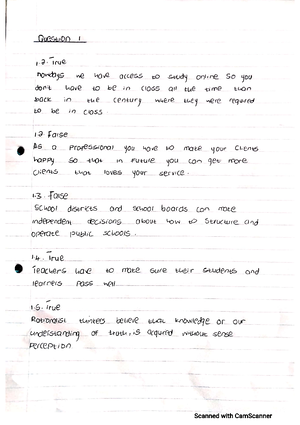 Question 1
1.2. True
Nondays we have access to study online so you
don't have to be in class all the time than
back in the century where they were required
to be in class.
1.2 False
As a professional you have to make your clients
happy so that in future you can get more
clients that loves your service.
1.3. False
School districts and school boards can make
independent decisions about how to structure and
operate public schools.
1.4. True
Teachers have to make sure their students and
learners pass well.
1.5. True
Rationalist thinkers believe that knowledge or our
understanding of truth, is acquired without sense
perception
Scanned with CamScanner